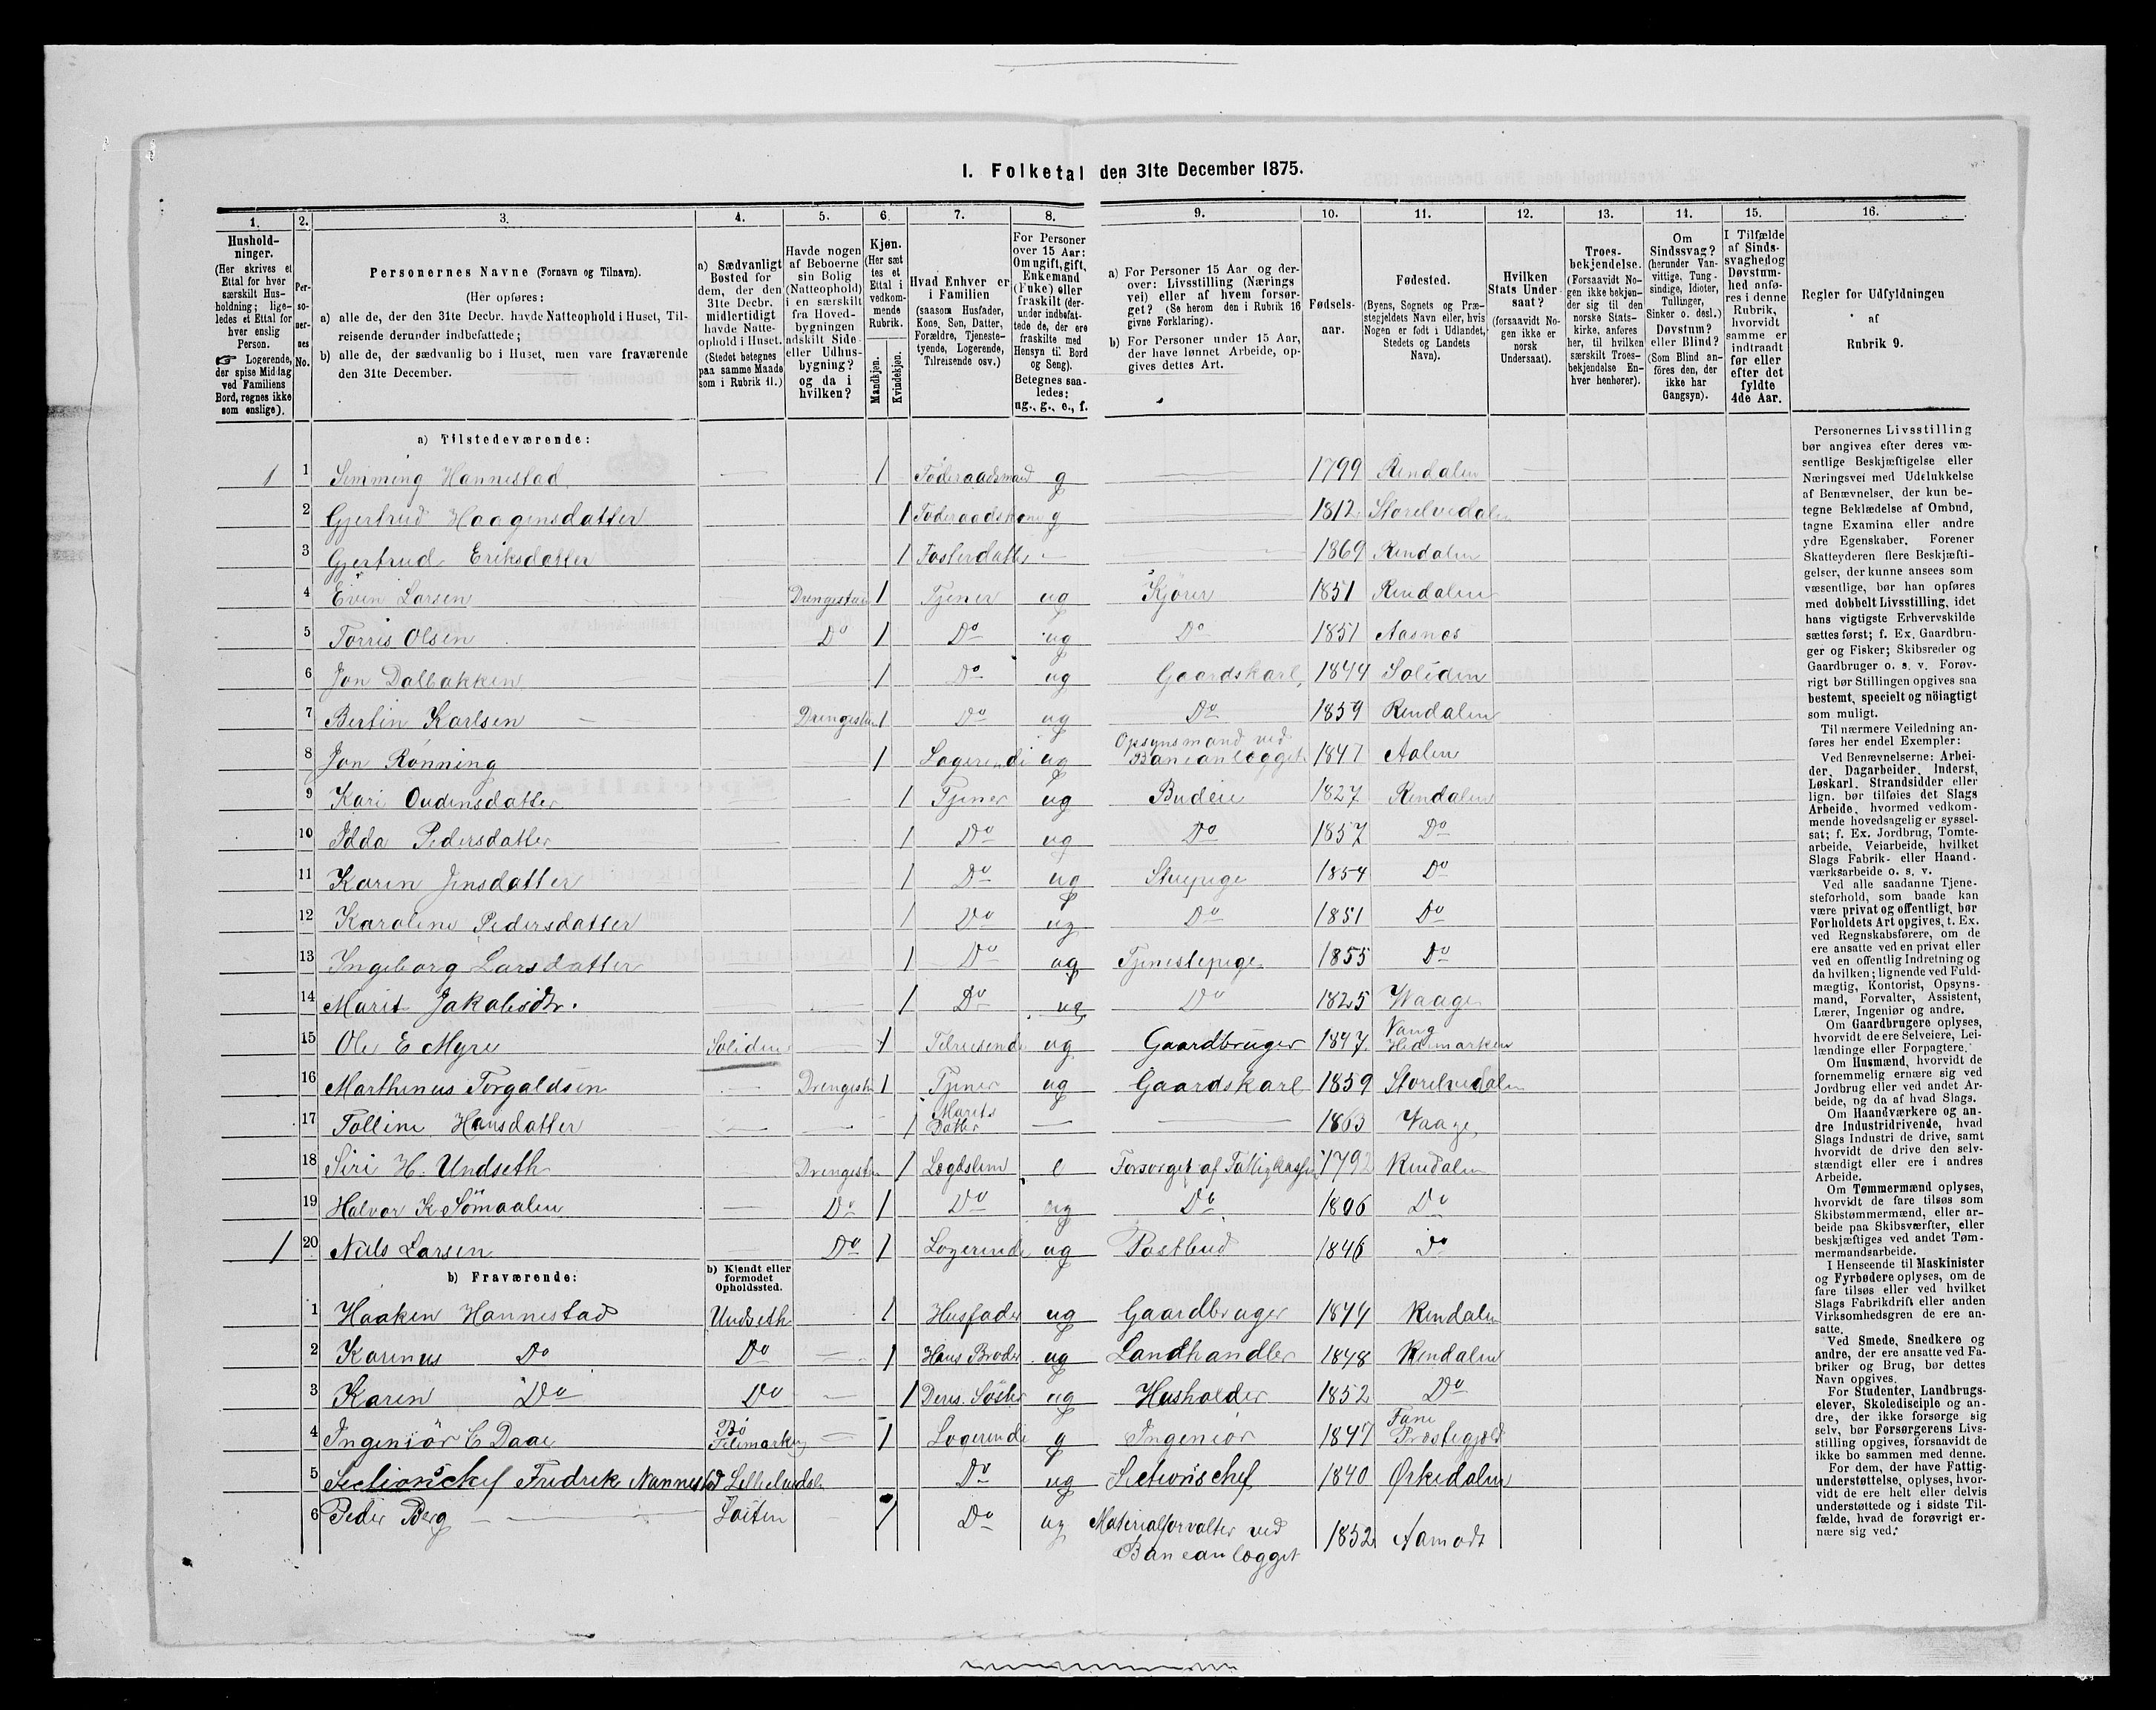 I. Folketal den 31te December 1875.
1. 2. 3. 4. 5. 6. 7. 8. 9. 10. 11. 12. 13. 14. 15. 16.
Hushold-
ninger.
(Her skrives et
Ettal for hver
særskilt Hus-
holdning; lige-
ledes et Ettal for
hver enslig
Person.
☞ Logerende,
der spise Middag
ved Familiens
Bord, regnes ikke
som enslige).
Per-
so-
ner-
nes
No.
Personernes Navne (Fornavn og Tilnavn).
(Her opføres:
a) alle de, der den 31te Decbr. havde Natteophold i Huset, Til-
reisende derunder indbefattede;
b) alle de, der sædvanlig bo i Huset, men vare fraværende
den 31te December.
a) Sædvanligt
Bosted for
dem, der den
31te Decbr.
midlertidigt
havde Natte-
ophold i Huset.
(Stedet betegnes
paa samme Maade
som i Rubrik 11.)
Havde nogen
af Beboerne
sin Bolig
(Natteophold)
i en særskilt
fra Hoved-
bygningen
adskilt Side-
eller Udhus-
bygning?
og da i
hvilken?
Kjøn.
(Her sæt
tes et
Ettal i
vedkom-
mende
Rubrik.
Mandkjøn.
Kvindekjøn.
Hvad Enhver er
i Familien
(saasom Husfader,
Kone, Søn, Datter,
Forældre, Tjeneste-
tyende, Logerende,
Tilreisende osv.)
For Personer
over 15 Aar:
Om ugift, gift,
Enkemand
(Enke) eller
fraskilt (der-
under indbefat-
tede de, der ere
fraskilte med
Hensyn til Bord
og Seng).
Betegnes saa-
ledes:
ug., g., e., f.
a) For Personer 15 Aar og der-
over: Livsstilling (Nærings
vei) eller af hvem forsør-
get? (Se herom den i Rubrik 16
givne Forklaring).
b) For Personer under 15 Aar,
der have lønnet Arbeide, op-
gives dettes Art.
Fødsels-
aar.
Fødested.
(Byens, Sognets og Præ-
stegjeldets Navn eller, hvis
Nogen er født i Udlandet,
Stedets og Landets
Navn).
Hvilken
Stats Under
saat?
(forsaavidt No-
gen ikke er
norsk
Undersaat).
Troes-
bekjendelse.
(Forsaavidt No-
gen ikke bekjen-
der sig til den
norske Stats-
kirke, anføres
her, til hvilken
særskilt Troes-
bekjendelse En-
hver henhører).
Om
Sindssvag?
(herunder Van-
vittige, Tung-
sindige, Idioter,
Tullinger,
Sinker o. desl.)
Døvstum?
eller Blind?
(Som Blind an-
föres den, der
ikke har
Gangsyn).
I Tilfælde
af Sinds-
svaghed og
Døvstum-
hed anfø-
res i denne
Rubrik,
hvorvidt
samme er
indtraadt
før eller
efter det
fyldte
4de Aar.
Regler for Udfyldningen
af
Rubrik 9.
a) Tilstedeværende:
1 1 Simming Hannestad 1 Föderaadsmand g 1799 Rendalen
2 Gjertrud Haagensdatter 1 Föderaadskone g 1812 Storelvedalen
3 Gjertrud Eriksdatter 1 Fosterdatter 1869 Rendalen
4 Even Larsen Drengestuen 1 Tjener ug Kjörer 1851 Rendalen
5 Torris Olsen Do 1 Do ug Do 1851 Aasnes
6 Jon Dalbakken 1 Do ug Gaardskarl 1844 Soliden
7 Bertin Karlsen Drengestuen 1 Do ug Do 1859 Rendalen
8 Jon Rönning 1 Logerende ug Opsynsmand ved
Baneanlægget 1847 Aalen
9 Kari Oudensdatter 1 Tjener ug Budeie 1827 Rendalen
10 Idda Pedersdatter 1 Do ug Do 1857 Do
11 Karen Jensdatter 1 Do ug Stuepige 1854 Do
12 Karoline Pedersdatter 1 Do ug Do 1851 Do
13 Ingeborg Larsdatter 1 Do ug Tjenestepige 1855 Do
14 Marit Jakobsdtr. 1 Do ug Do 1825 Waage
15 Ole E Myre Soliden 1 Tilreisende ug Gaardbruger 1847 Vang
Hedemarken
16 Marthinus Torgaldsen Drengestu 1 Tjener ug Gaardskarl 1859 Storelvedalen
17 Talline Hansdatter 1 Marits
Datter 1863 Vaage
18 Siri H. Undseth Drengestu 1 Lægdslem e Forsørget af Fattigkassen 1792 Rendalen
19 Halvor K Sömaalen Do 1 Do ug Do 1806 Do
1 20 Nils Larsen Do 1 Logerende ug Postbud 1846 Do
b) Fraværende:
b) Kjendt eller
formodet
Opholdssted.
1 Haaken Hannestad Undseth 1 Husfader ug Gaardbruger 1844 Rendalen
2 Karinus Do Do 1 Hans Broder ug Landhandler 1848 Rendalen
3 Karen Do Do 1 Deres Söster ug Husholder 1852 Do
4 Ingeniör C Daae Bö
Telemarken 1 Logerende g Ingeniör 1847 Fane
Præstegjeld
5 Sectionschef Fredrik Nannestad Lilleelvedal Do ug Sectionschef 1840 Ørkedalen
6 Peder Berg Löiten 1 Do ug Materialforvalter ved
Baneanlægget 1852 Aamodt
Personernes Livsstilling
bør angives efter deres væ-
sentlige Beskjæftigelse eller
Næringsvei med Udelukkelse
af Benævnelser, der kun be-
tegne Beklædelse af Ombud,
tagne Examina eller andre
ydre Egenskaber. Forener
Skatteyderen flere Beskjæfti-
gelser, der kunne ansees som
væsentlige, bør han opføres
med dobbelt Livsstilling, idet
hans vigtigste Erhvervskilde
sættes først; f. Ex. Gaardbru-
ger og Fisker; Skibsreder og
Gaardbruger o. s. v. Forøv-
rigt bør Stillingen opgives saa
bestemt, specielt og nöiagtigt
som muligt.
Til nærmere Veiledning an-
føres her endel Exempler:
Ved Benævnelserne: Arbei-
der, Dagarbeider, Inderst,
Løskarl, Strandsidder eller
lign. bør tilføies det Slags
Arbeide, hvormed vedkom-
mende hovedsagelig er syssel-
sat; f. Ex. Jordbrug, Tomte-
arbeide, Veiarbeide, hvilket
Slags Fabrik- eller Haand-
værksarbeide o. s. v.
Ved alle saadanne Tjene-
steforhold, som baade kan
være privat og offentligt, bør
Forholdets Art opgives, t. Ex.
ved Regnskabsførere, om de
ere ansatte ved en privat eller
ved en offentlig Indretning og
da hvilken; lignende ved Fuld-
mægtig, Kontorist, Opsyns-
mand, Forvalter, Assistent,
Lærer, Ingeniør og andre.
Om Gaardbrugere oplyses,
hvorvidt de ere Selveiere, Lei-
lændinge eller Forpagtere.
Om Husmænd, hvorvidt de
fornemmelig ernære sig ved
Jordbrug eller ved andet Ar-
beide, og da af hvad Slags.
Om Haandværkere og an-
dre Industridrivende, hvad
Slags Industri de drive, samt
hvorvidt de drive den selv-
stændigt eller ere i andres
Arbeide.
Om Tømmermænd oplyses,
hvorvidt de fare tilsøs som
Skibstømmermænd, eller ar-
beide paa Skibsværfter, eller
beskjæftiges ved andet Tøm-
mermandsarbeide.
I Henseende til Maskinister
og Fyrbødere oplyses, om de
fare tilsøs eller ved hvilket
Slags Fabrikdrift eller anden
Virksomhedsgren de ere an-
satte.
Ved Smede, Snedkere og
andre, der ere ansatte ved Fa-
briker og Brug, bør dettes
Navn opgives.
For Studenter, Landbrugs-
elever, Skoledisciple og an-
dre, der ikke forsørge sig
selv, bør Forsørgerens Livs-
stilling opgives, forsaavidt de
ikke bo sammen med denne.
For dem, der have Fattig-
understøttelse, oplyses, hvor-
vidt de ere helt eller delvis
understøttede og i sidste Til-
fælde, hvad de forøvrigt er-
nære sig ved.